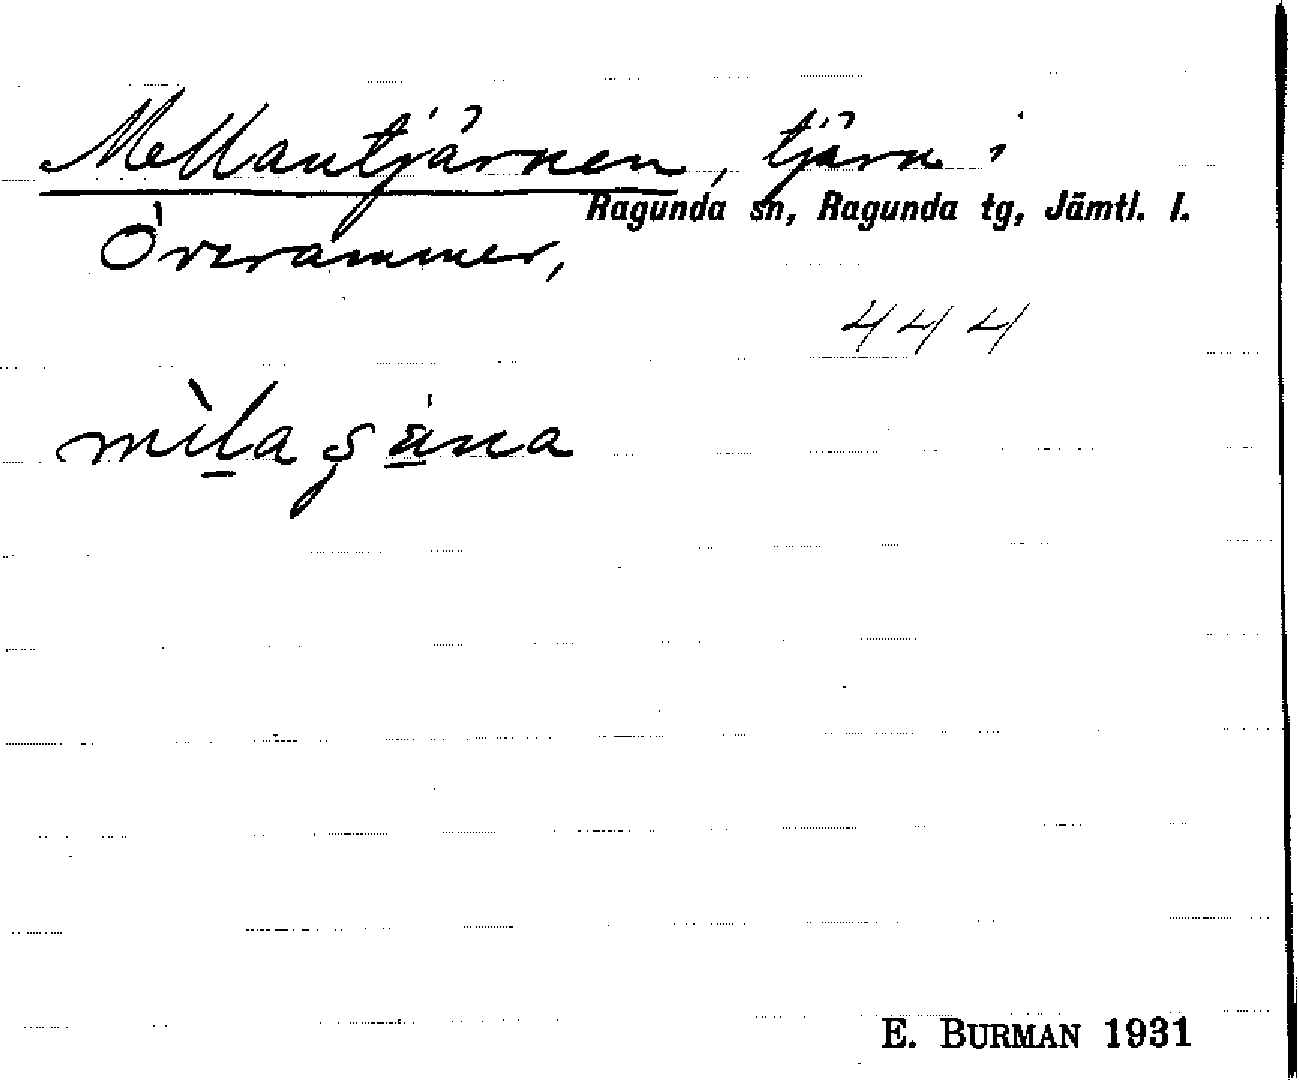 Mellantjärnen, tjärn i
Ragunda sn, Ragunda tg, Jämtl. l.
Överammer,
444
mìla ʂäna
E. BURMAN 1931